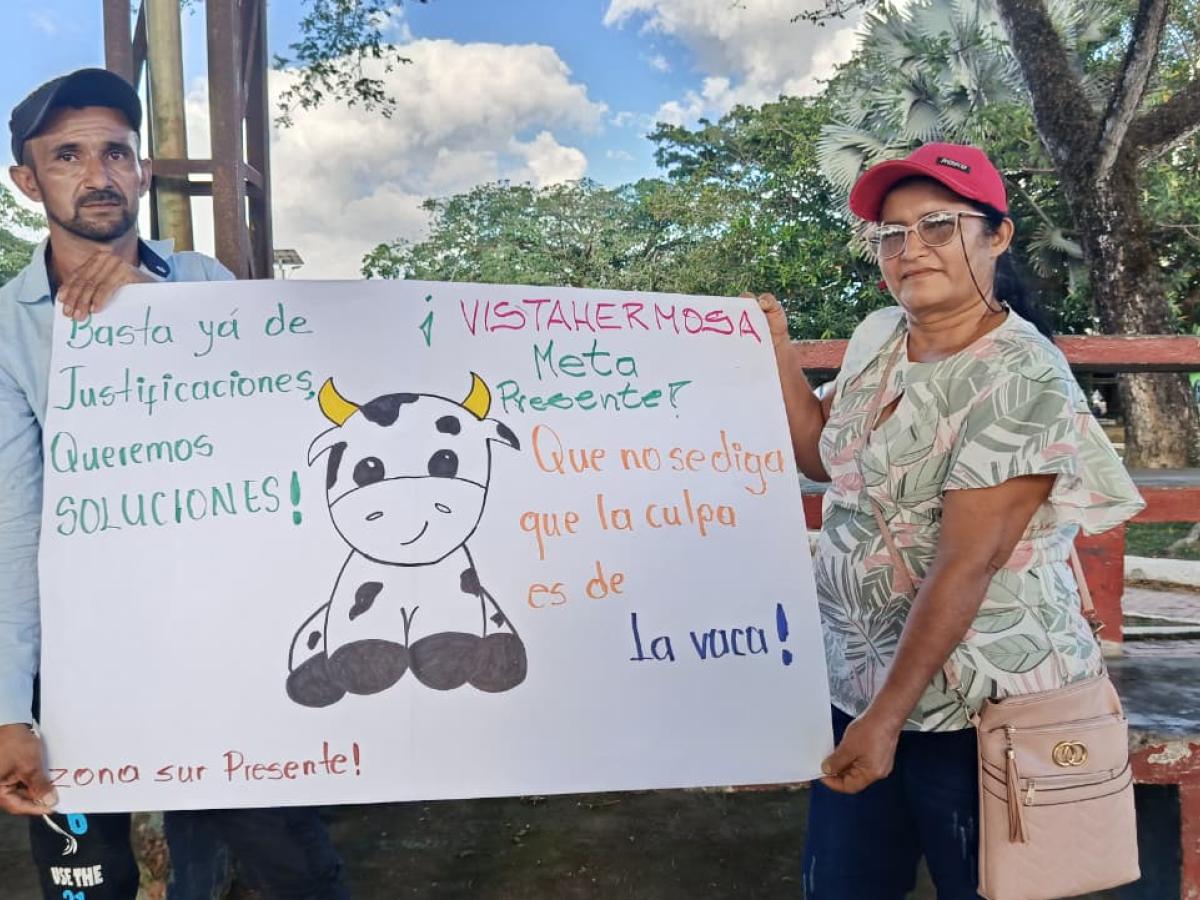 Basta yá de
Justificaciones,
Queremos
SOLUCIONES!
¡ VISTAHERMOSA
Meta
Presente?
Que no se diga
que la culpa
es de
La vaca!
zona sur Presente!
USE THE